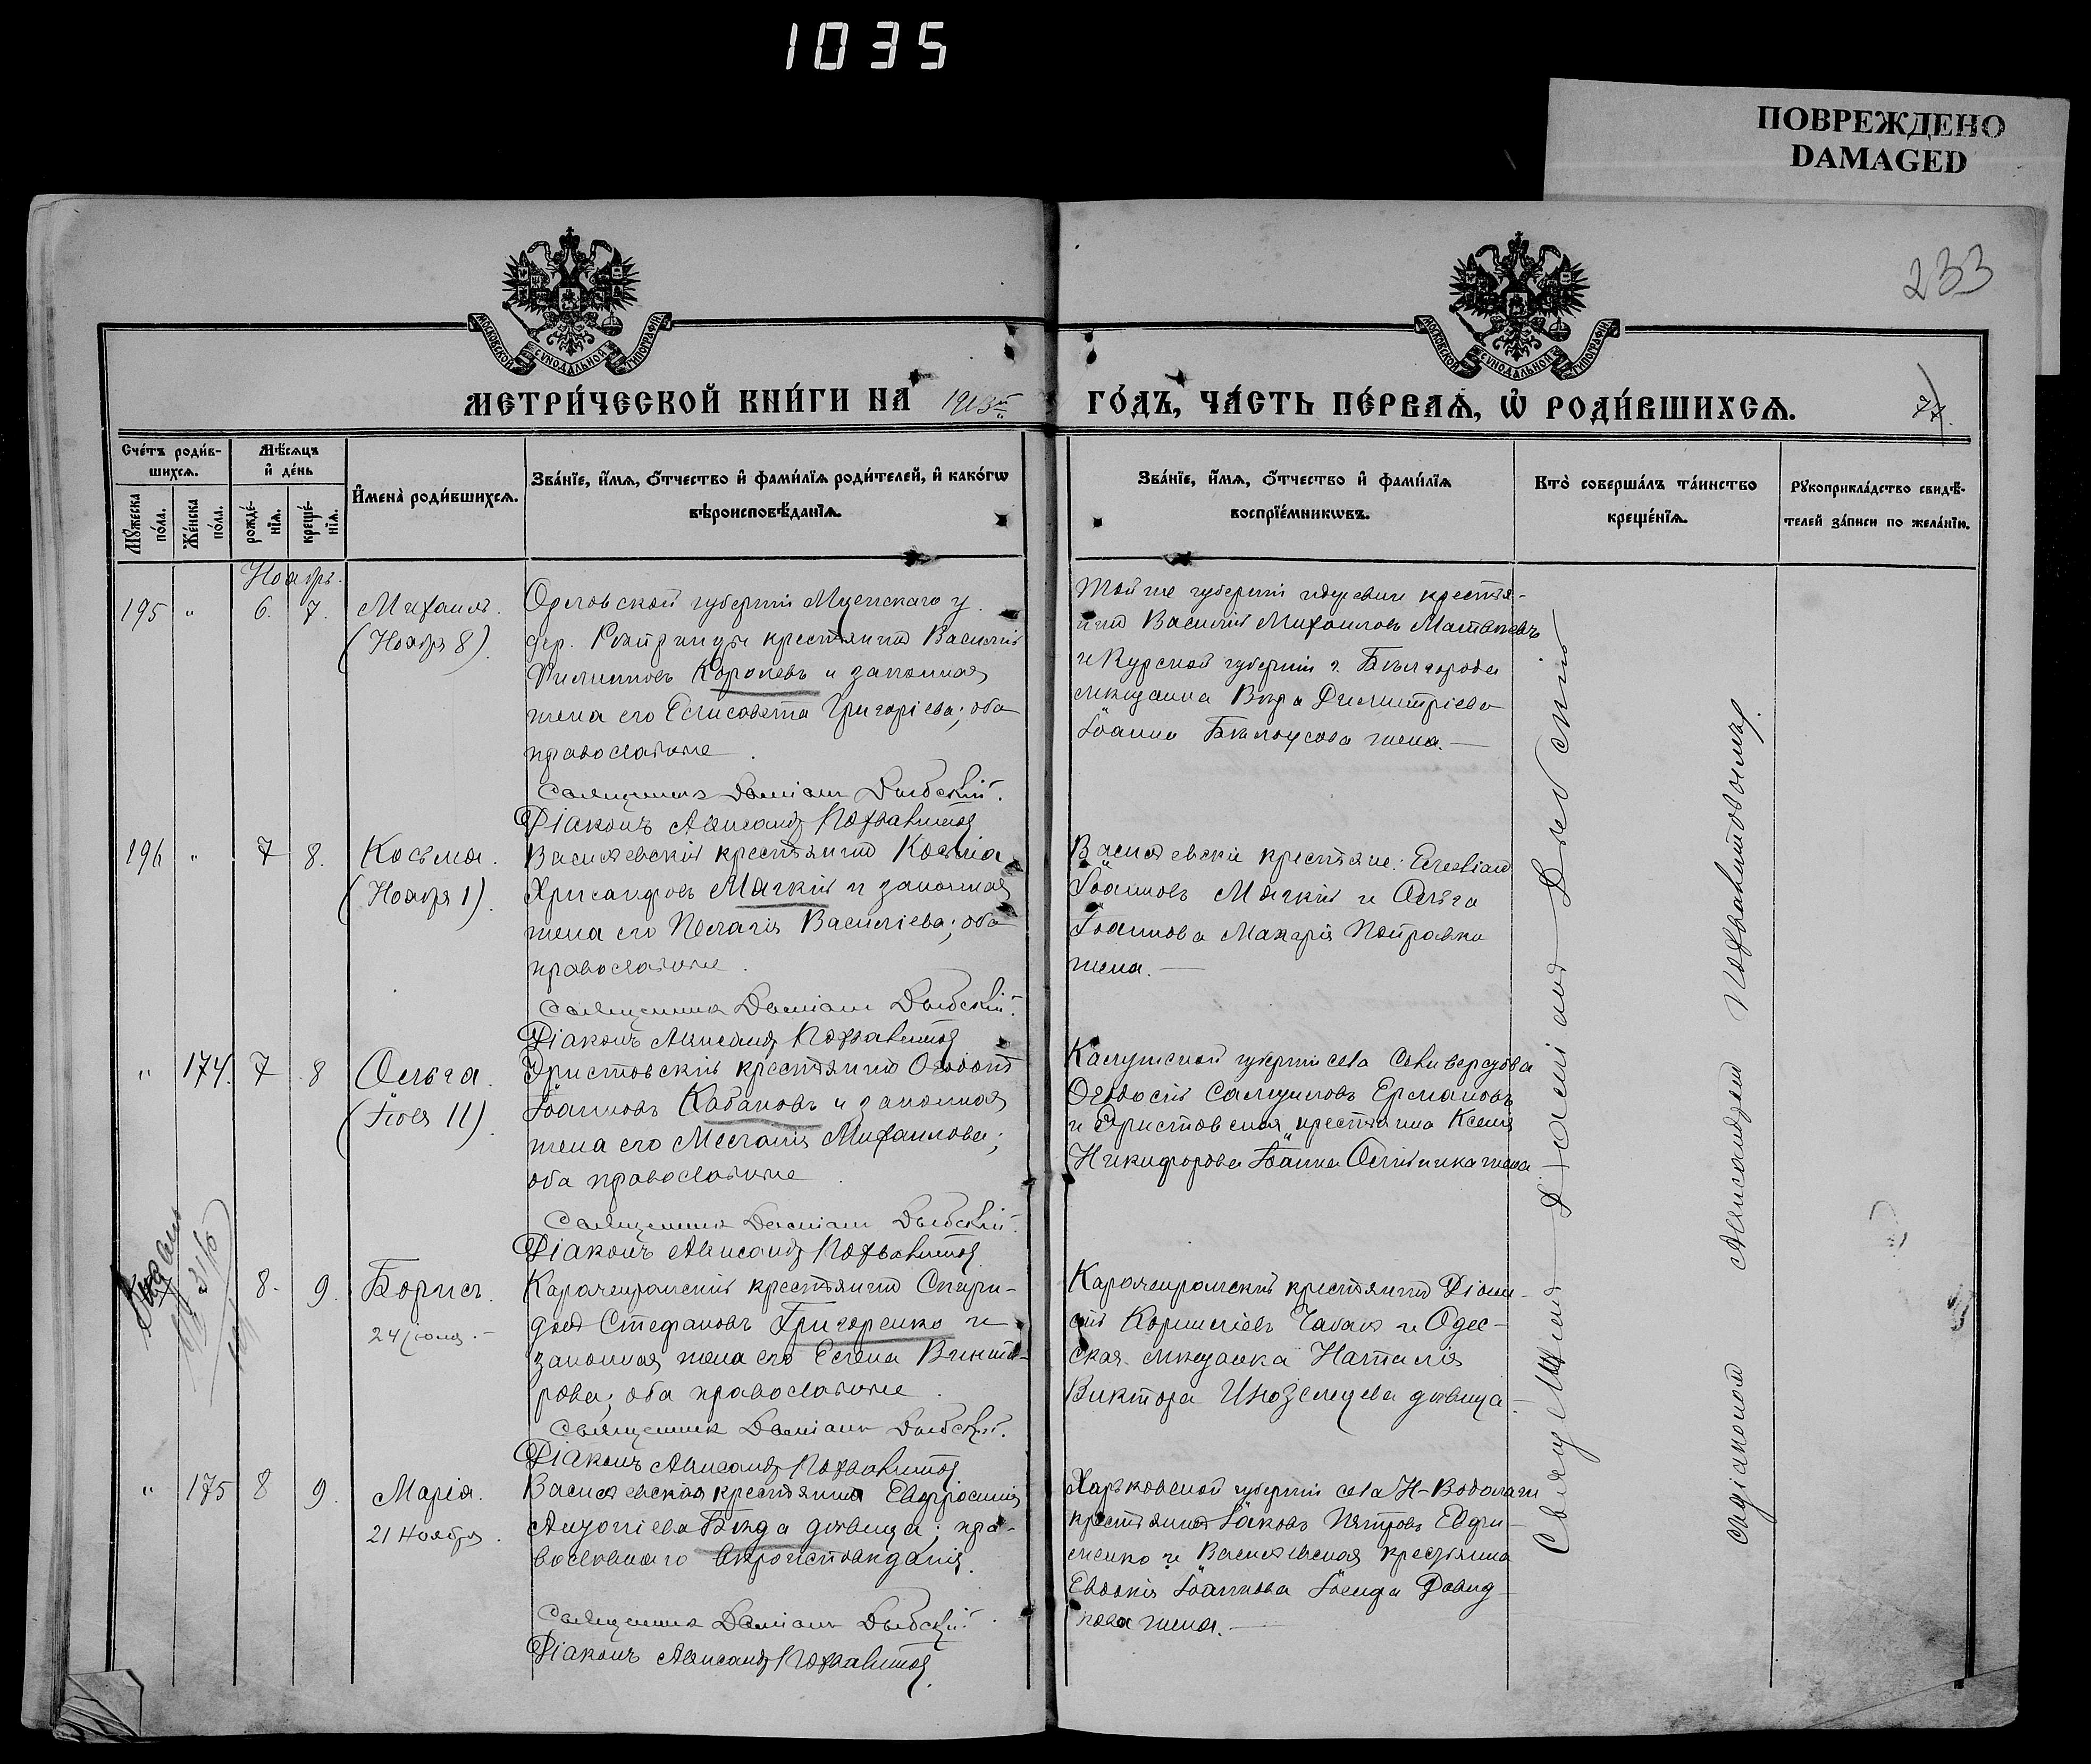 1035
ПОВРЕЖДЕНО
DAMAGED
233
МОСКОВСКОЙ СУНОДАЛЬНОЙ ТИПОГРАФІИ
МОСКОВСКОЙ СУНОДАЛЬНОЙ ТИПОГРАФІИ
МЕТРИ́ЧЕСКОЙ КНИ́ГИ НА 1913й
ГО́ДЪ, ЧА́СТЬ ПЕ́РВАѦ, Ѡ҆ РОДИ́ВШИХСѦ.
77.
Сче́тъ роди́в-
шихсѧ.
Мѣ́сѧцъ
и҆ де́нь
Мꙋ́жеска
по́ла.
Же́нска
по́ла.
рожде́-
нїѧ.
креще́-
нїѧ.
И҆мена̀ роди́вшихсѧ.
Зва́нїе, и҆́мѧ, ѻ҆́тчество и҆ фами́лїѧ роди́телей, и҆ како́гѡ
вѣроисповѣ́данїѧ.
Зва́нїе, и҆́мѧ, ѻ҆́тчество и҆ фами́лїѧ
воспрїе́мникѡвъ.
Кто̀ соверша́лъ та́инство
креще́нїѧ.
Рꙋкоприкла́дство свидѣ́-
телей за́писи по жела́нїю.
Ноябрь.
195 " 6. 7. Михаилъ.
(Ноября 8).
Орловской губерніи Мценскаго у.
дер. крестьянинъ Василій
Филипповъ Королевъ и законная
жена его Елисавета Григоріева; оба
православные.
Священникъ Даміанъ Дыбскій.
Діаконъ Александръ Похвалитовъ
Той же губерніи крестья-
нинъ Василій Михаиловъ
и Курской губерніи г. Бѣлгорода
мѣщанина Вѣра Димитріева
Іоанна Бѣлоусова жена.—
196 " 7 8. Косьма.
(Ноября 1).
Василевскій крестьянинъ Косьма
Хрисанфовъ Мягкій и законная
жена его Пелагія Василіева; оба
православные.
Священникъ Даміанъ Дыбскій.
Діаконъ Александръ Похвалитовъ
Василевскіе крестьяне:
Іоанновъ Мягкій и Ольга
Іоаннова Макарія Петровки
жена.—
" 174. 7 8 Ольга.
(Іюля 11).
крестьянинъ
Іоанновъ Кабановъ и законная
жена его Меланія Михаилова;
оба православные.
Священникъ Даміанъ Дыбскій.
Діаконъ Александръ Похвалитовъ
Калужской губерніи села
Ермаковъ
и крестьянка Ксенія
Никифорова Іоанна жена
8. 9. Борисъ.
24 іюля.—
крестьянинъ Спири-
донъ Стефановъ Григоренко и
законная жена его Елена Викто-
рова; оба православные.
Священникъ Даміанъ Дыбскій.
Діаконъ Александръ Похвалитовъ
крестьянинъ Діони-
сій Корниліевъ Чабакъ и Одес-
ская мѣщанка Наталія
Виктора Иноземцева дѣвица.—
" 175 8 9. Марія.
21 Ноября.
Василевская крестьянка Евфросинія
Бѣда дѣвица; пра-
вославнаго вѣроисповѣданія.
Священникъ Даміанъ Дыбскій.
Діаконъ Александръ Похвалитовъ.
Харьковской губерніи села Н-Водолаги
крестьянинъ Іаковъ Петровъ Ефи-
менко и Василевская крестьянка
Евдокія Іоаннова Іосифа Давид-
кова жена.—
Священникъ Даміанъ Дыбскій
съ діакономъ Александромъ Похвалитовымъ